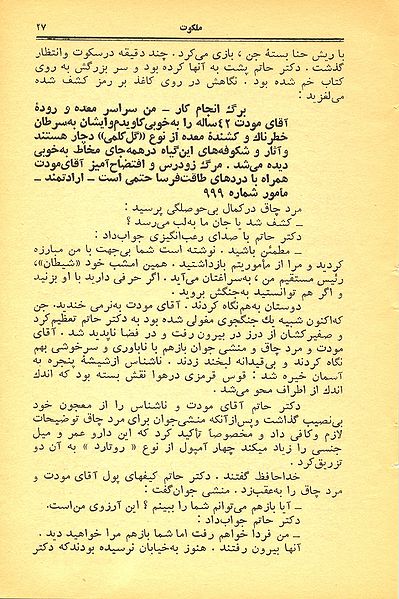 ملکوت
۲۷
با ریش حنا بستهٔ جن ، بازی می‌کرد . چند دقیقه درسکوت وانتظار
گذشت . دکتر حاتم پشت به آنها کرده بود و سر بزرگش به روی
کتاب خم شده بود . نگاهش در روی کاغذ بر رمز کشف شده
می‌لغزید :
برگ انجام کار – من سراسر معده و رودهٔ
آقای مودت ۴۲ساله را به‌خوبی‌کاویدم‌وایشان به‌سرطان
خطرناك و کشندهٔ معده از نوع «گل‌کلمی» دچار هستند
و آثار و شکوفه‌های این‌گیاه درهمه‌جای مخاط به‌خوبی
دیده می‌شد . مرگ زودرس و افتضاح‌آمیز آقای‌مودت
همراه با دردهای طاقت‌فرسا حتمی است – ارادتمند –
مامور شماره ۹۹۹
مرد چاق درکمال بی‌حوصلگی پرسید :
– کشف شد یا جان ما به‌لب می‌رسد ؟
دکتر حاتم با صدای رعب‌انگیزی جواب‌داد :
– مطمئن باشید . نوشته است شما بی‌جهت با من مبارزه
کردید و مرا از مأموریتم بازداشتید . همین امشب خود «شیطان»،
رئیس مستقیم من ، به‌سراغتان می‌آید . اگر حرفی دارید با او بزنید
و اگر هم توانستید به‌جنگش بروید .
دوستان به‌هم‌نگاه کردند . آقای مودت به‌نرمی خندید. جن
که‌اکنون شبیه یك جنگجوی مغولی شده بود به دکتر حاتم تعظیم‌کرد
و صفیرکشان از درز در بیرون رفت و در فضا ناپدید شد . آقای
مودت و مرد چاق و منشی جوان بازهم با ناباوری و سرخوشی بهم
نگاه کردند و بی‌قیدانه لبخند زدند . ناشناس ازشیشهٔ پنجره به
آسمان خیره شد : قوس قرمزی درهوا نقش بسته بود که اندك
اندك از اطراف محو می‌شد .
دکتر حاتم آقای مودت و ناشناس را از معجون خود
بی‌نصیب گذاشت وپس‌ازآنکه منشی‌جوان برای مرد چاق توضیحات
لازم وکافی داد و مخصوصاً تأکید کرد که این دارو عمر و میل
جنسی را زیاد میکند چهار آمپول از نوع « روتارد » به آن دو
تزریق‌کرد .
خداحافظ گفتند . دکتر حاتم کیفهای پول آقای مودت و
مرد چاق را به‌عقب‌زد . منشی جوان‌گفت :
– آیا بازهم می‌توانم شما را ببینم ؟ این آرزوی من‌است.
دکتر حاتم جواب‌داد :
– من فردا خواهم رفت اما شما بازهم مرا خواهید دید .
آنها بیرون رفتند . هنوز به‌خیابان نرسیده بودندکه دکتر